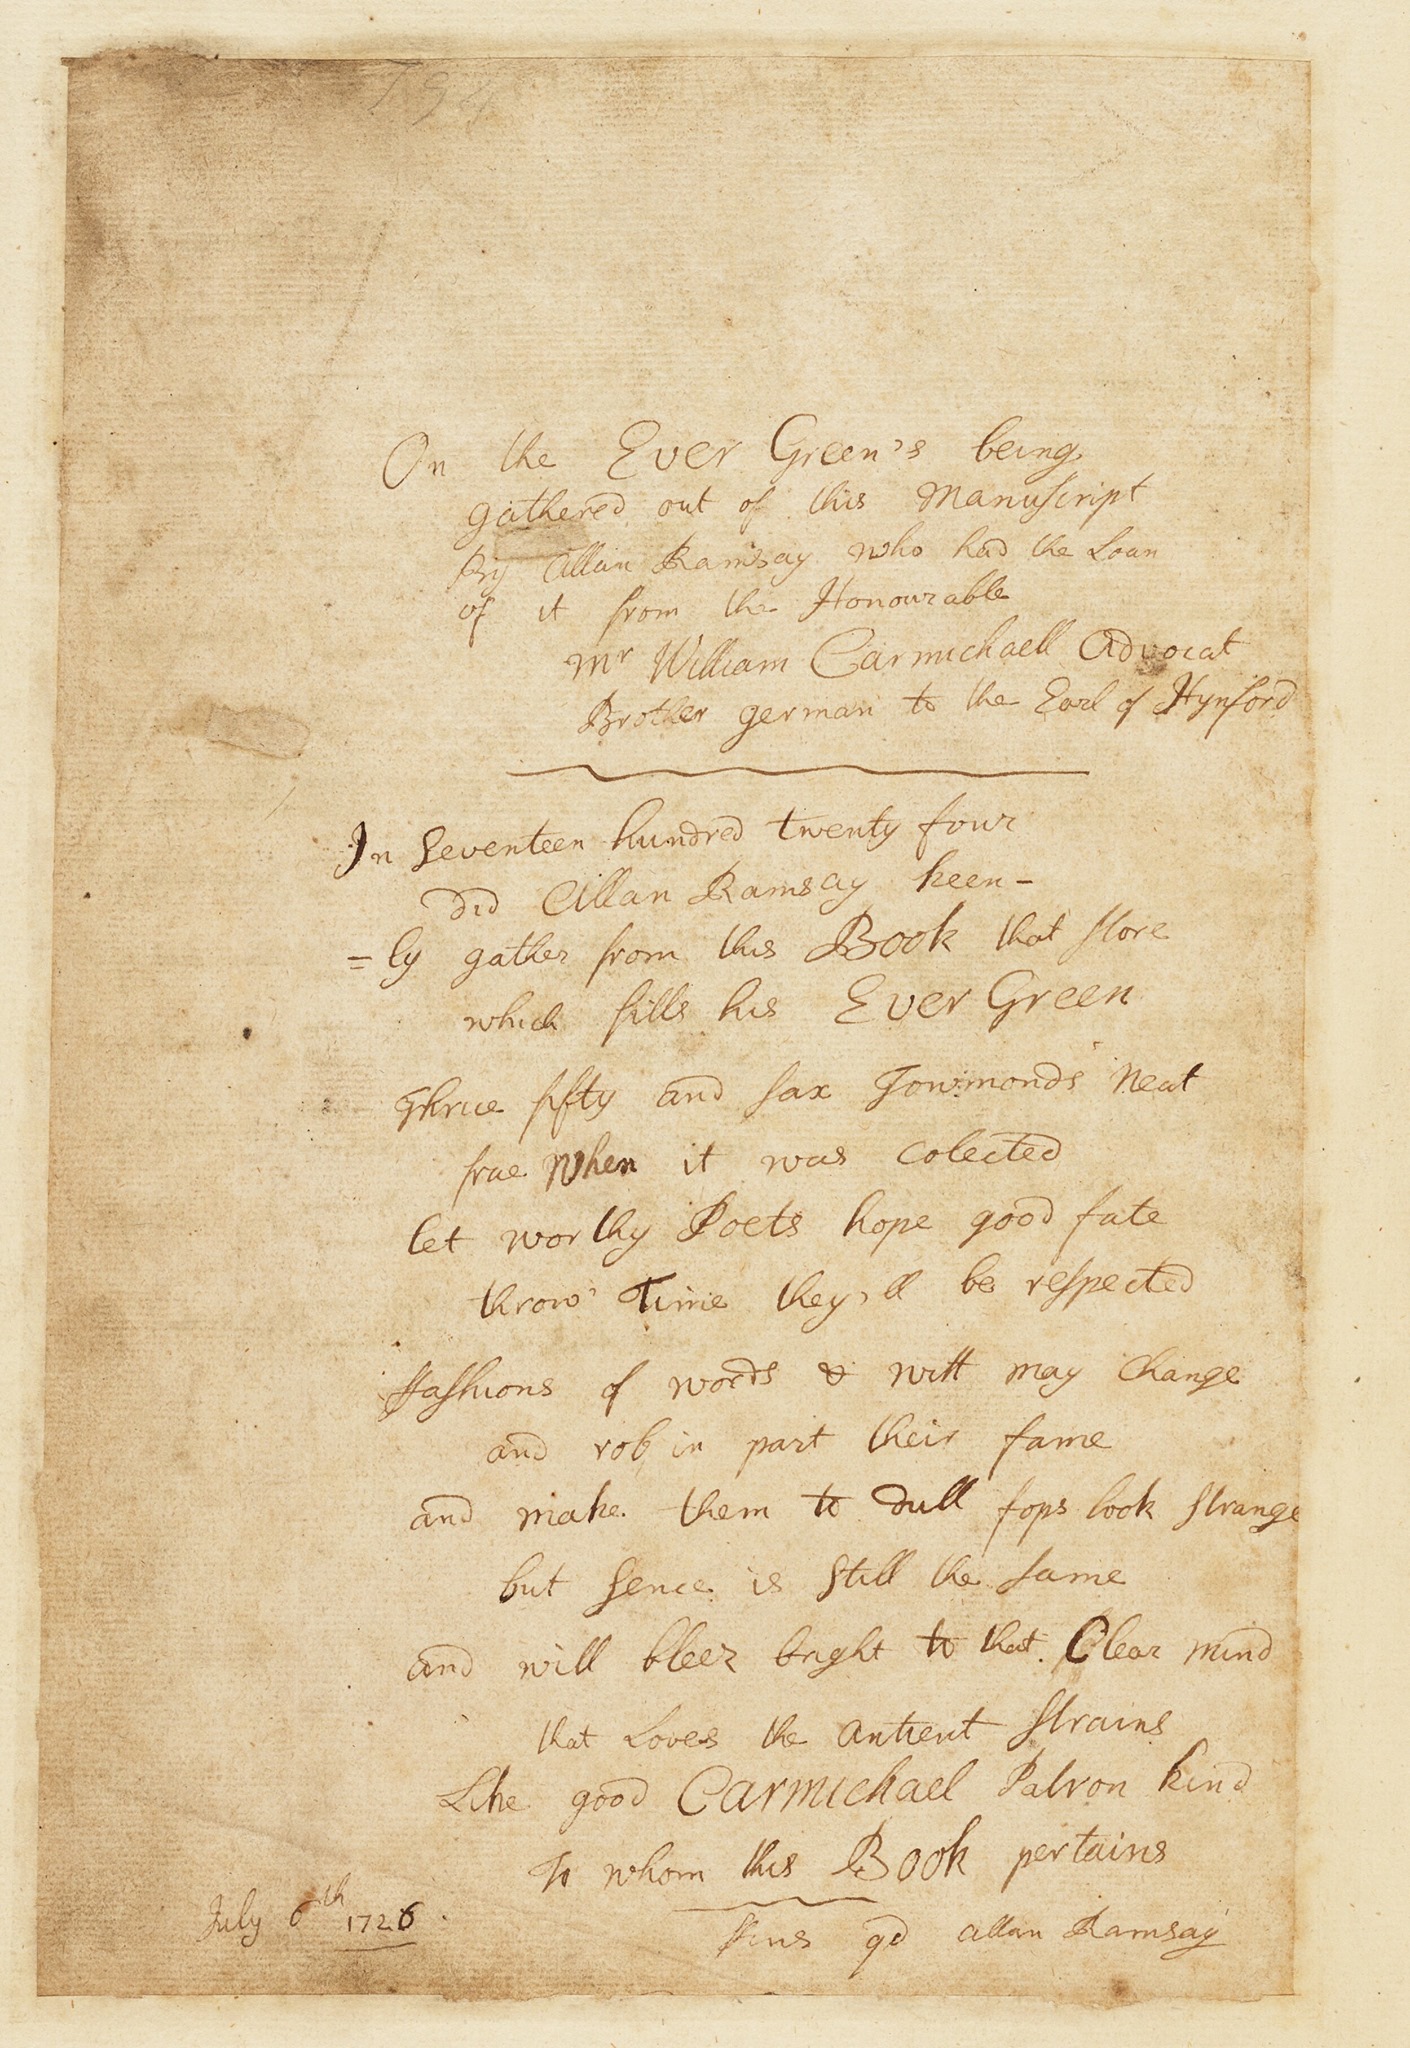 On the Ever Green's being
gathered out of this Manuscript
By Allan Ramsay who had the Loan
of it from the Honourable
Mr William Carmichaell Advocat
Brother german to the Earl of Hynford
In Seventeen hundred twenty four
did Allan Ramsay keen-
=ly gather from this Book that store
which fills his Ever Green
Thrice fifty and sax Towmonds neat
frae when it was colected
let worthy Poets hope good fate
throw' Time they'll be respected
ffashions of words & witt may change
and rob in part their fame
and make them to dull fops look strange
but sence is still the same
and will bleez bright to that Clear mind
that Loves the antient strains
Like good Carmichael Patron kind
To whom this Book pertains
July 6th 1726
qd Allan Ramsay